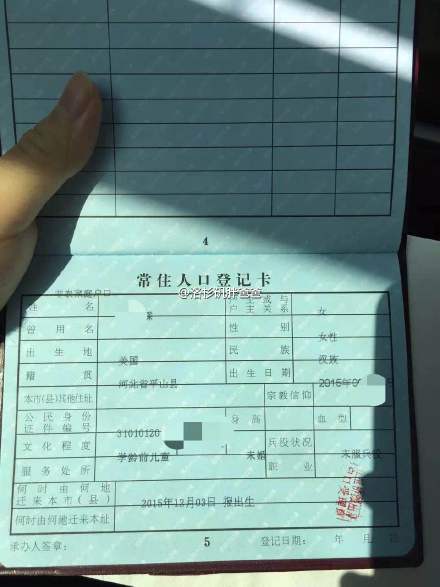 4
常住人口登记卡
非农家庭户口
@洛杉矶胖爸爸
姓 名 户主或与户主关系 女
曾用名 性别 女性
出生地 美国 民族 汉族
籍贯 河北省平山县 出生日期 2015年0
本市(县)其他住址 宗教信仰
公民身份证件编号 31010120 身高 血型
文化程度 学龄前儿童 未婚 兵役状况 未服兵役
服务处所 职业
何时由何地迁来本市(县) 2015年12月03日 报出生
何时由何地迁来本址
承办人签章: 5 登记日期: 年 月 日